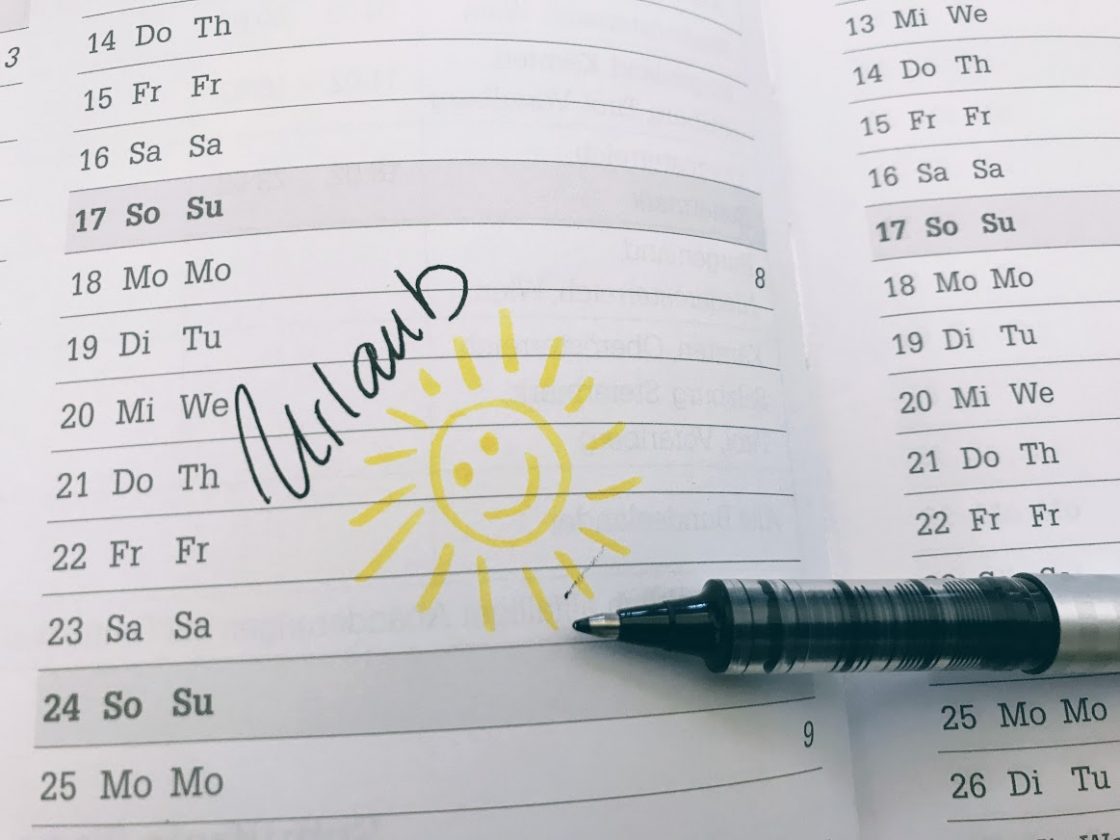 3
14 Do Th
15 Fr Fr
16 Sa Sa
17 So Su
18 Mo Mo 8
19 Di Tu
20 Mi We
21 Do Th
22 Fr Fr
23 Sa Sa
24 So Su
25 Mo Mo 9
Urlaub
13 Mi We
14 Do Th
15 Fr Fr
16 Sa Sa
17 So Su
18 Mo Mo
19 Di Tu
20 Mi We
21 Do Th
22 Fr Fr
25 Mo Mo
26 Di Tu